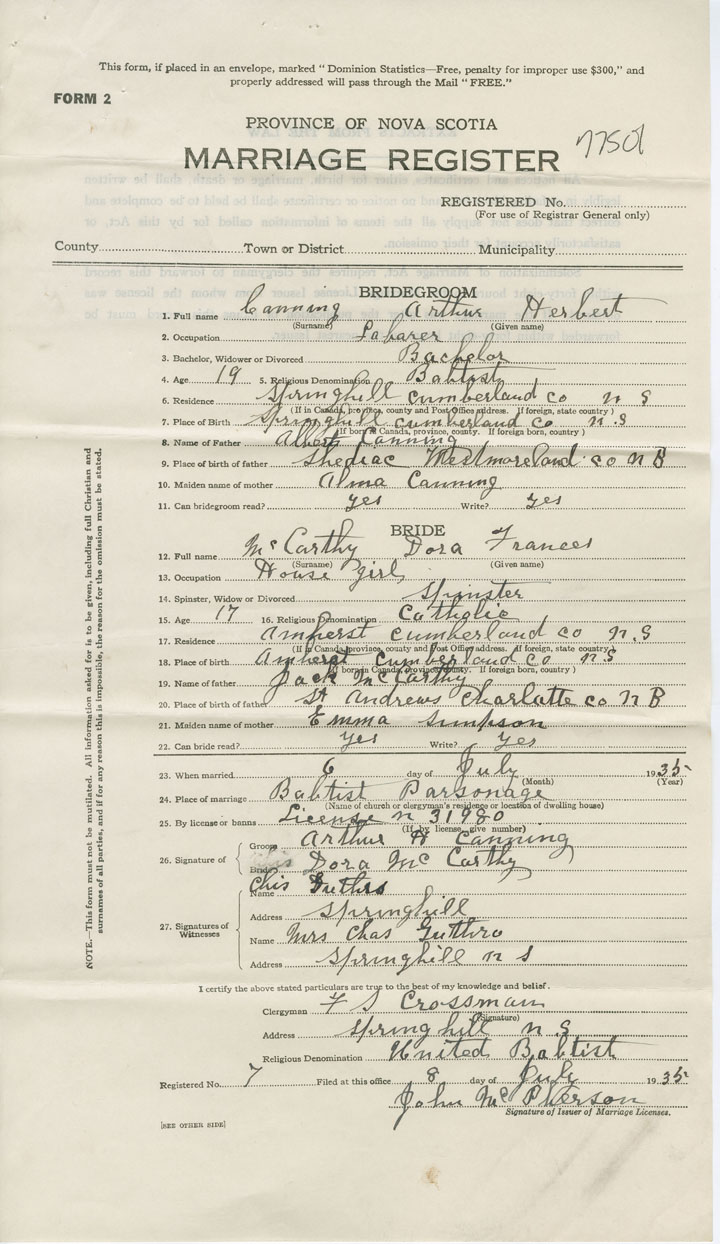 This form, if placed in an envelope, marked "Dominion Statistics—Free, penalty for improper use $300," and
properly addressed will pass through the Mail "FREE."
FORM 2
PROVINCE OF NOVA SCOTIA
77501
MARRIAGE REGISTER
REGISTERED No.
(For use of Registrar General only)
County Town or District Municipality
BRIDEGROOM
1. Full name Canning Arthur Herbert
(Surname) (Given name)
2. Occupation Labarer
3. Bachelor, Widower or Divorced Bachelor
4. Age 19 5. Religious Denomination Babtist
6. Residence Springhill Cumberland co n S
(If in Canada, province, county and Post Office address. If foreign, state country)
7. Place of Birth Springhill cumberland co n.S
(If born in Canada, province, county. If foreign born, country)
8. Name of Father Albert Canning
9. Place of birth of father Shediac Westmoreland co n B
10. Maiden name of mother Alma Canning
11. Can bridegroom read? yes Write? yes
BRIDE
12. Full name McCarthy Dora Frances
(Surname) (Given name)
13. Occupation House girl
14. Spinster, Widow or Divorced Spinster
15. Age 17 16. Religious Denomination Catholic
17. Residence Amherst Cumberland co n.S
(If in Canada, province, county and Post Office address. If foreign, state country)
18. Place of birth Amherst Cumberland co n.S
(If born in Canada, province, county. If foreign born, country)
19. Name of father Jack McCarthy
20. Place of birth of father St Andrews Charlatte co n B
21. Maiden name of mother Emma Simpson
22. Can bride read? yes Write? yes
23. When married 6 day of July 1935
(Month) (Year)
24. Place of marriage Babtist Parsonage
(Name of church or clergyman's residence or location of dwelling house)
25. By license or banns License n 31980
(If by license, give number)
26. Signature of Groom Arthur H Canning
Bride Dora McCarthy
27. Signatures of Witnesses
Name Chis Guthro
Address Springhill
Name Mrs Chas Guthro
Address Springhill n S
I certify the above stated particulars are true to the best of my knowledge and belief.
Clergyman F S Crossman
(Signature)
Address Springhill n S
Religious Denomination United Babtist
Registered No. 7 Filed at this office 8 day of July 1935
John McPherson
Signature of Issuer of Marriage Licenses.
[SEE OTHER SIDE]
NOTE.—This form must not be mutilated. All information asked for is to be given, including full Christian and
surnames of all parties, and if for any reason this is impossible, the reason for the omission must be stated.